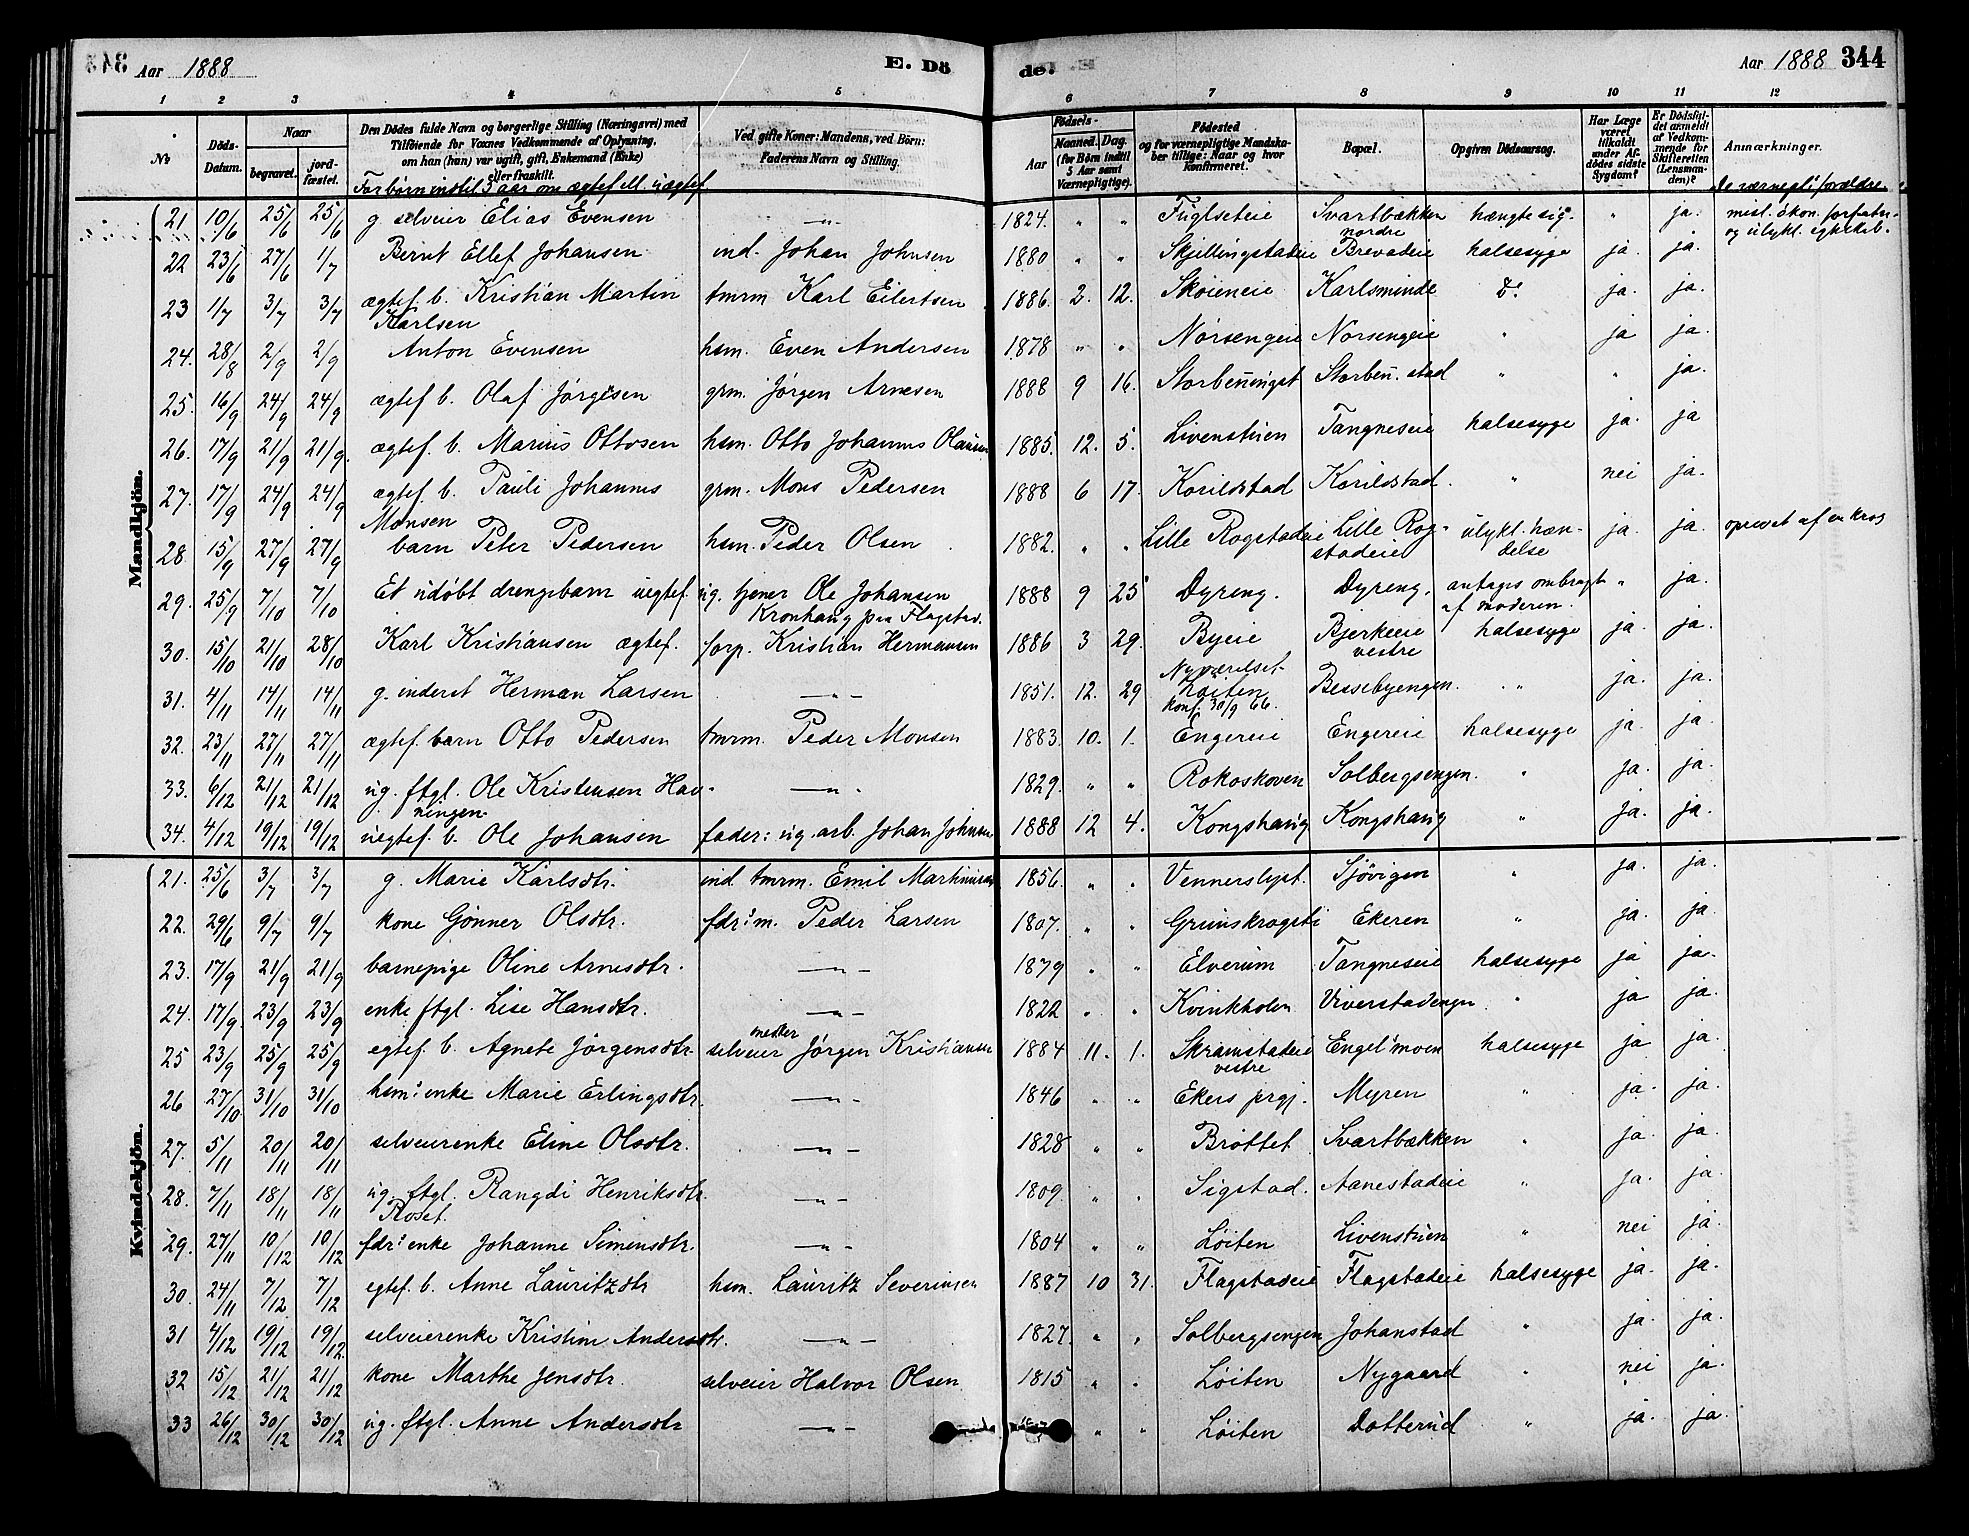 Aar 1888 E. Dö
de. Aar 1888 344
1 2 3 4 5 6 7 8 9 10 11 12
No
Döds-Datum.
Naar
begravet.
jordfæstet.
Den Dödes fulde Navn og borgerlige Stilling (Næringsvei) med
Tilföiende for Voxnes Vedkommende af Oplysning,
om han (hun) var ugift, gift, Enkemand (Enke)
eller fraskilt.
For børn indtil 5 aar om ægtef. ell. uægtef.
Ved gifte Koner: Mandens, ved Börn:
Faderens Navn og Stilling.
Födsels-
Aar
Maaned. Dag.
(for Börn indtil
5 Aar samt
Værnepligtige).
Födested
og for værnepligtige Mandskaber tillige: Naar og hvor
Konfirmeret.
Bopæl.
Opgiven Dödsaarsag.
Har Læge
været
tilkaldt
under Afdödes sidste
Sygdom?
Er Dödsfaldet anmeldt
af Vedkommende for
Skifteretten
(Lensmanden)?
Anmærkninger.
Mandkjön.
21. 10/6 25/6 25/6 g. selveier Elias Evensen —„— 1824. „ „ Fuglseteie Svartbækken hængte sig. „ ja. misl. økon. forfatn.
nordre og ulykl. egteskab.
22 23/6 27/6 1/7 Bernt Ellef Johansen ind. Johan Johnsen 1880 „ „ Skjellingstadeie Brevadeie halsesyge ja. ja.
23 1/7 3/7 3/7 ægtef. b. Kristian Martin tmrm Karl Eilertsen 1886. 2. 12. Skøieneie Karlsminde Do ja. ja.
Karlsen
24. 28/8 2/9 2/9 Anton Evensen hsm. Even Andersen 1878 „ „ Norsengeie Norsengeie „ ja ja.
25. 16/9 24/9 24/9 ægtef. b. Olaf Jørgesen grm. Jørgen Arnesen 1888 9 16. „ „ ja.
26. 17/9 21/9 21/9. ægtef. b. Marius Ottosen hsm. Otto Johannes Olausen 1885. 12. 5. Livenstuen Tangneseie halsesyge ja. ja
27. 17/9 24/9 24/9 ægtef. b. Pauli Johannes grm. Mons Pedersen 1888 6 17. Korildstad Korildstad. „ nei ja.
Monsen
28. 15/9 27/9 27/9 barn Peter Pedersen hsm. Peder Olsen 1882. „ „ Lille Rogstadeie Lille Rog- ulykl. hæn- ja. ja. oprevet af en krog
stadeie delse
29. 25/9 7/10 7/10 Et udøbt drengebarn uegtef. ug. tjener Ole Johansen 1888 9 25 Dyreng. Dyreng. antages ombragt „ ja.
Kronhaug paa Flagstad. af moderen.
30. 15/10 21/10 28/10 Karl Kristiansen ægtef. forp. Kristian Hermansen 1886 3 29. Byeie Bjerkeeie halsesyge ja. ja.
vestre
31. 4/11 14/11 14/11 g. inderst Herman Larsen —„— 1851. 12. 29 Løiten Bessebyengen. „ ja. ja.
konf. 30/9 66.
32. 23/11 27/11 27/11 ægtef. barn Otto Pedersen tmrm. Peder Monsen 1883. 10. 1. Engereie Engereie halsesyge ja. ja.
33. 6/12 21/12 21/12 ug. ftgl. Ole Kristensen Hav- —„— 1829. „ „ Rokoskoven Solbergsengen. „ ja. ja.
ningen.
34. 4/12 19/12 19/12 uegtef. b. Ole Johansen fader: ug. arb. Johan Johnsen 1888 12 4. Kongshaug Kongshaug „ ja. ja.
Kvindekjön.
21. 25/6 3/7 3/7 g. Marie Karlsdtr. ind. tmrm. Emil Martinusen 1856. „ „ Vennerslyst. Sjøvigen „ ja. ja.
22. 29/6 9/7 9/7 kone Gønner Olsdtr. fdr:m. Peder Larsen 1807. „ „ Ekeren „ ja. ja.
23. 17/9 21/9 21/9 barnepige Oline Arnesdtr. —„— 1879 „ „ Elverum Tangneseie halsesyge ja ja.
24. 17/9. 23/9 23/9 enke ftgl. Lise Hansdtr. —„— 1822 „ „ Kvinkholen Viverstadengn „ ja ja.
25 23/9 25/9 25/9 egtef. b. Agnete Jørgensdtr. selveier Jørgen Kristiansen 1884 11. 1. Skramstadeie Engel'moen halsesyge ja ja.
vestre
26 27/10 31/10 31/10 hsm:enke Marie Erlingsdtr. —„— 1846 „ „ Ekers prgj. Myren „ ja. ja.
27. 5/11 20/11 20/11 selveierenke Eline Olsdtr. —„— 1828 „ „ Brøttet Svartbækken „ ja. ja.
28. 7/11 18/11 18/11 ug. ftgl. Rangdi Henriksdtr. —„— 1809. „ „ Sigstad. Aanestadeie „ ja. ja.
Roset.
29. 27/11 10/12 10/12 fdr:enke Johanne Simensdtr. —„— 1804 „ „ Løiten Livenstuen „ nei ja.
30. 24/11 7/12 7/12 egtef. b. Anne Lauritzdtr hsm. Lauritz Severinsen 1887 10 31. Flagstadeie Flagstadeie halsesyge ja. ja.
31 4/12 19/12 19/12. selveierenke Kristine Andersdtr. —„— 1827. „ „ Solbergsengen Johanstad „ ja. ja.
32 15/12 21/12 21/12 kone Marthe Jensdtr. selveier Halvor Olsen. 1815 „ „ Løiten Nygaard „ nei ja.
33 26/12 30/12 30/12 ug. ftgl. Anne Andersdtr —„— „ „ Løiten Dotterud „ ja. ja.